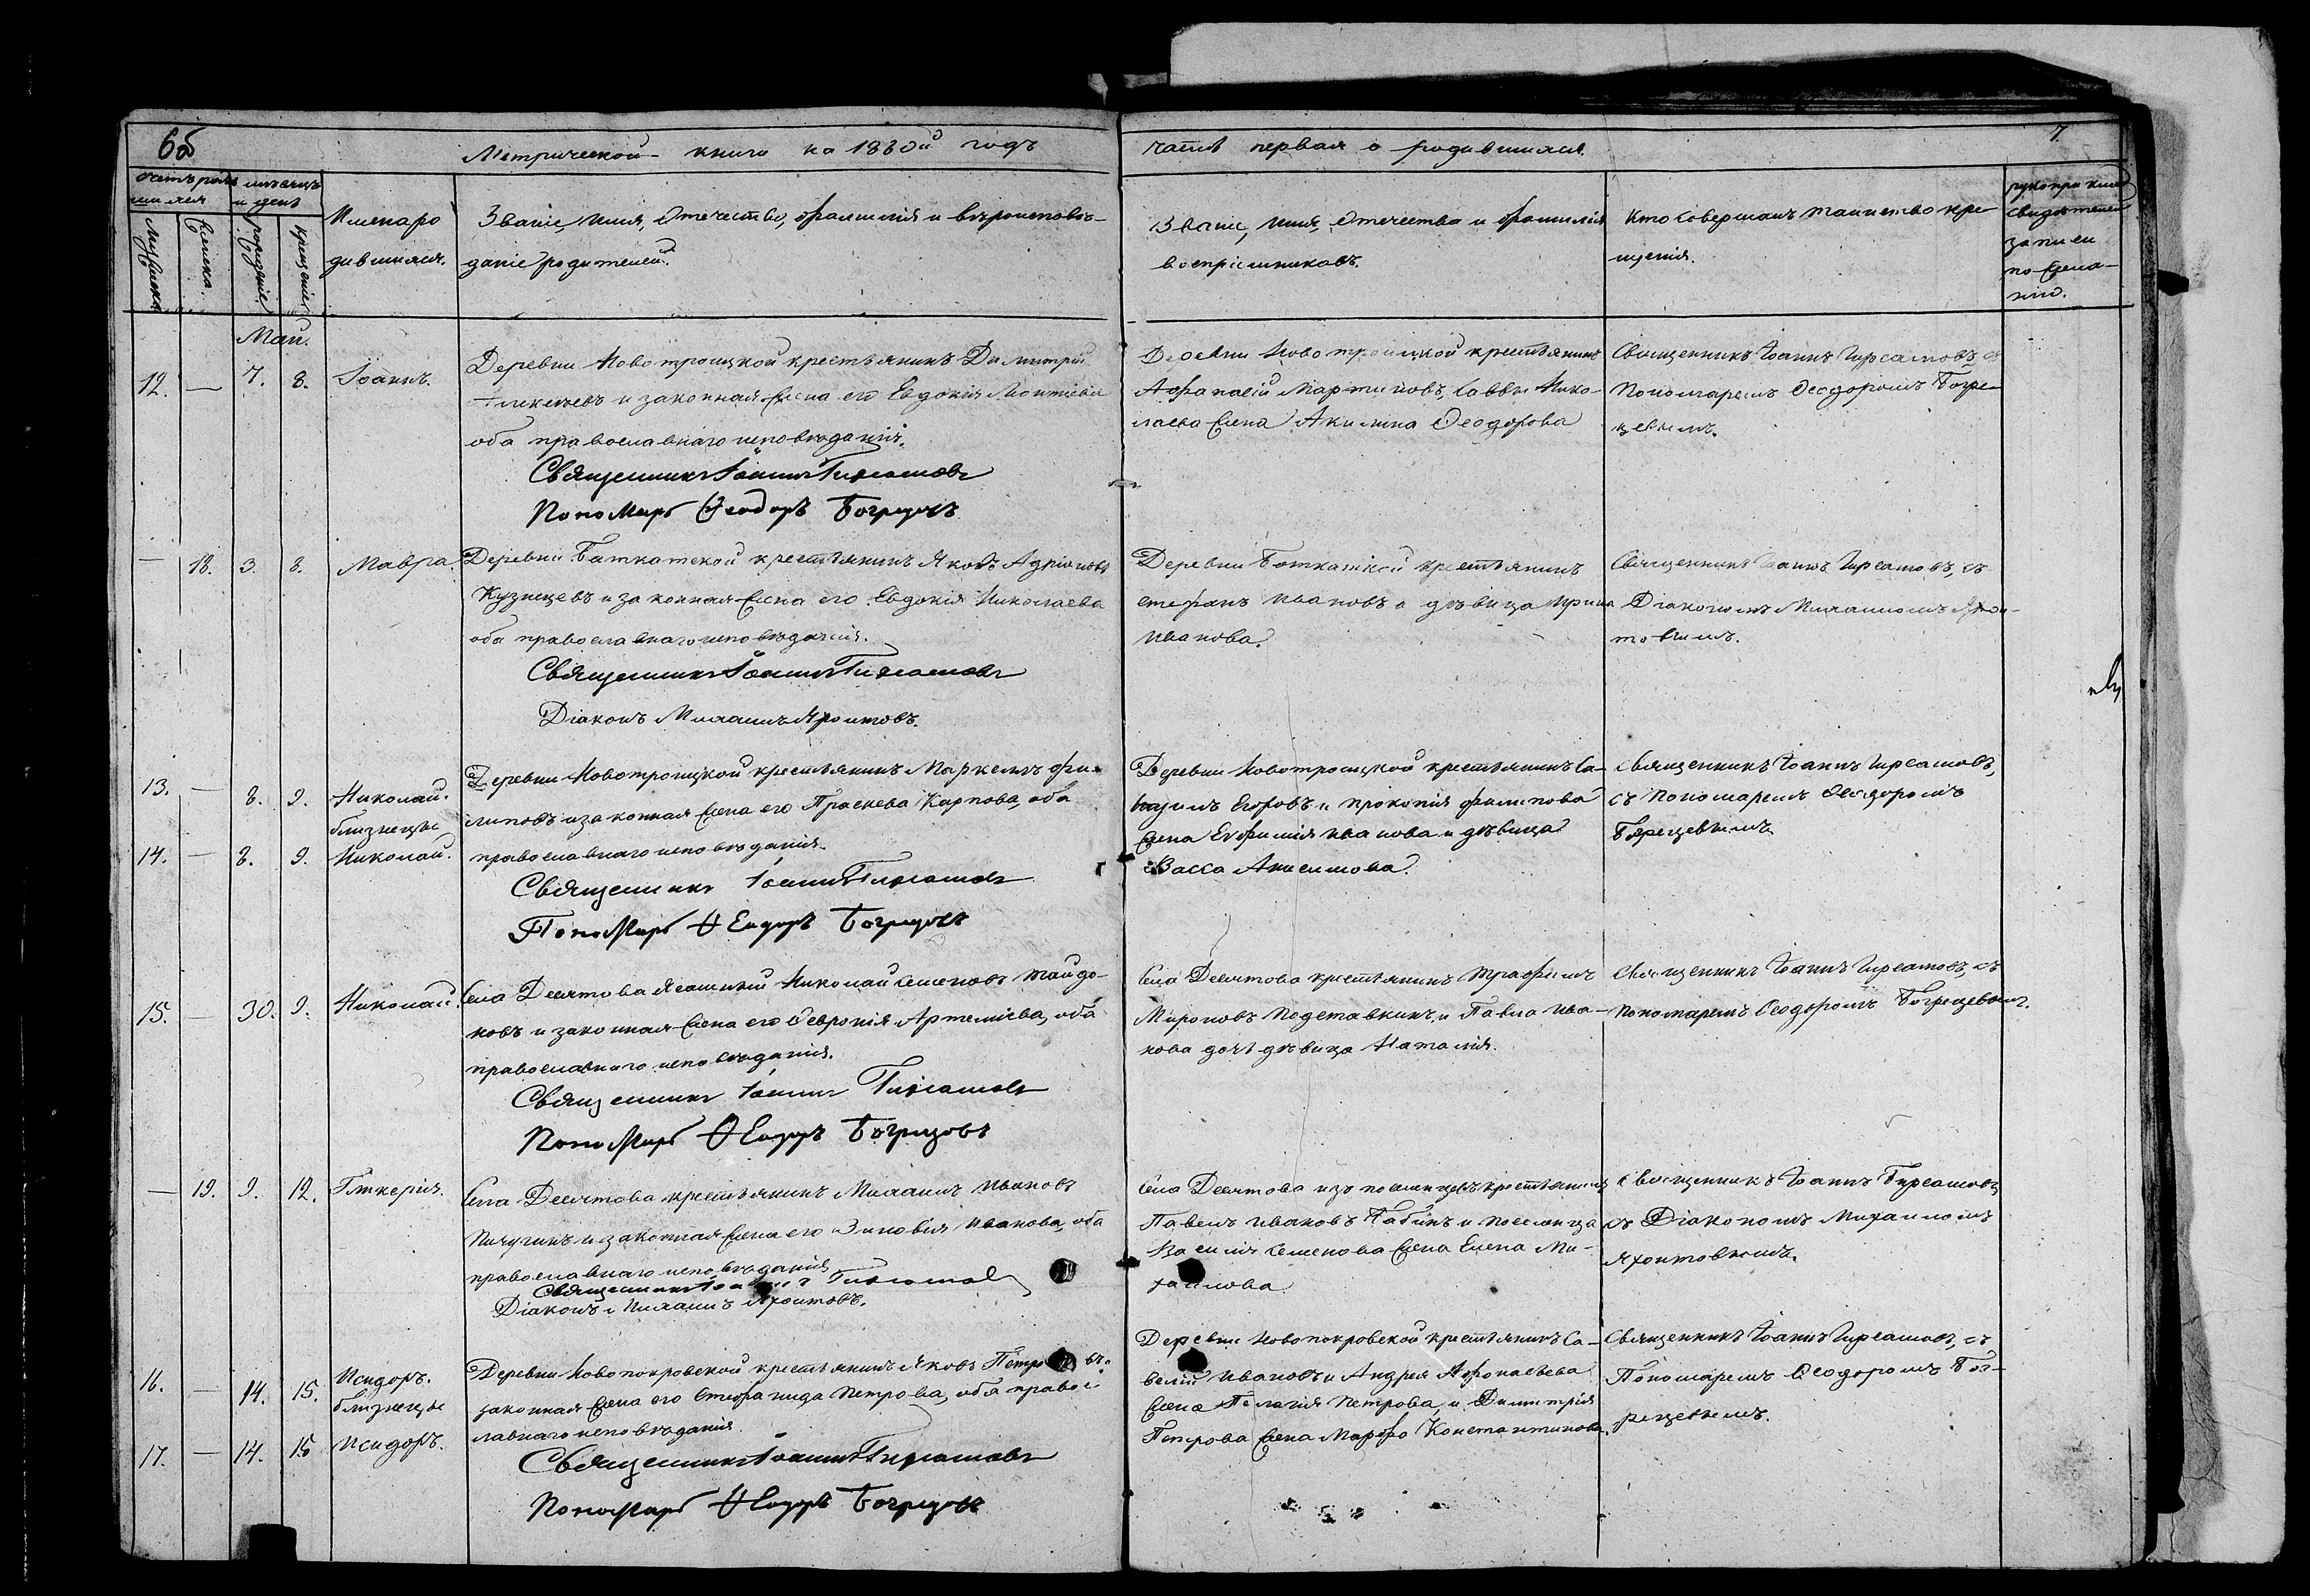 6б
Метрической книги на 1880й годъ
часть первая о родившихся.
7
Счетъ родив месяцъ
шихся и день
Мужеска.
Женска.
рожденіе
крещеніе
Имена ро
дившихся.
Званіе, имя, отечество, фамилія и вѣроисповѣ-
даніе родителей.
Званіе, имя, отечество и фамилія
воспріемниковъ.
Кто совершалъ таинство кре-
щенія.
рукоприклад
свидѣтелей
записи
по жела-
нію.
Май.
12. — 7. 8. Іоаннъ.
Деревни Новотроицкой крестьянинъ Димитрій
и законная жена его Евдокія Леонтіева
оба православнаго исповѣданія.
Священникъ Іоаннъ Гирсамовъ
Пономарь Ѳеодоръ Богрецовъ
Деревни Новотроицкой крестьянинъ
Афанасій Мартиновъ, Саввы Нико-
лаева жена Акилина Ѳеодорова
Священникъ Іоаннъ Гирсамовъ съ
Пономаремъ Ѳеодоромъ Богре-
цевымъ.
— 18. 3. 8. Мавра.
Деревни Баткатской крестьянинъ Яковъ Адріановъ
Кузнецевъ и законная жена его Евдокія Николаева
оба православнаго исповѣданія.
Священникъ Іоаннъ Гирсамовъ
Діаконъ Михаилъ Яхонтовъ.
Деревни Баткатской крестьянинъ
Стефанъ Ивановъ и дѣвица Ирина
Иванова.
Священникъ Іоаннъ Гирсамовъ, съ
Діакономъ Михаиломъ Яхон-
товымъ.
13. — 8. 9. Николай.
близнецы
14. — 8. 9. Николай.
Деревни Новотроицкой крестьянинъ Маркелъ Фи-
липовъ и законная жена его Праскева Карпова, оба
православнаго исповѣданія.
Священникъ Іоаннъ Гирсамовъ
Пономарь Ѳеодоръ Богрецовъ
Деревни Новотроицкой крестьянинъ
Егоровъ и Прокопія Филипова
жена Евфимія Иванова и дѣвица
Васса Анисимова.
Священникъ Іоаннъ Гирсамовъ,
съ Пономаремъ Ѳеодоромъ
Богрецевымъ
15. — 30. 9. Николай.
Села Десятова Ясашный Николай Семеновъ Тайдо-
ковъ и законная жена его Февронія Артеміева, оба
православнаго исповѣданія.
Священникъ Іоаннъ Гирсамовъ
Пономарь Ѳеодоръ Богрецовъ
Села Десятова крестьянинъ Трофимъ
Мироновъ Подставкинъ, и Павла Ива-
нова дочь дѣвица Наталія.
Священникъ Іоаннъ Гирсамовъ, съ
Пономаремъ Ѳеодоромъ Богрецевымъ.
— 19. 9. 12. Гликерія.
Села Десятова крестьянинъ Михаилъ Ивановъ
Пичугинъ и законная жена его Зиновія Иванова, оба
православнаго исповѣданія
Священникъ Іоаннъ Гирсамовъ
Діаконъ Михаилъ Яхонтовъ.
Села Десятова изъ поселенцевъ крестьянинъ
Павелъ Ивановъ Бабинъ и поселенца
Василія Семенова жена Елена Ми-
хаилова.
Священникъ Іоаннъ Гирсамовъ,
съ Діакономъ Михаиломъ
Яхонтовымъ.
16. — 14. 15. Исидоръ.
близнецы
17. — 14. 15 Исидоръ.
Деревни Новопокровской крестьянинъ Яковъ Петровъ
законная жена его Стефанида Петрова, оба правос
лавнаго исповѣданія
Священникъ Іоаннъ Гирсамовъ
Пономарь Ѳеодоръ Богрецовъ
Деревни Новопокровской крестьянинъ Са-
велій Ивановъ и Андрея Афонасьева
жена Пелагія Петрова, и Димитрія
Петрова жена Марфа Константинова.
Священникъ Іоаннъ Гирсамовъ, съ
Пономаремъ Ѳеодоромъ Бог-
рецевымъ.